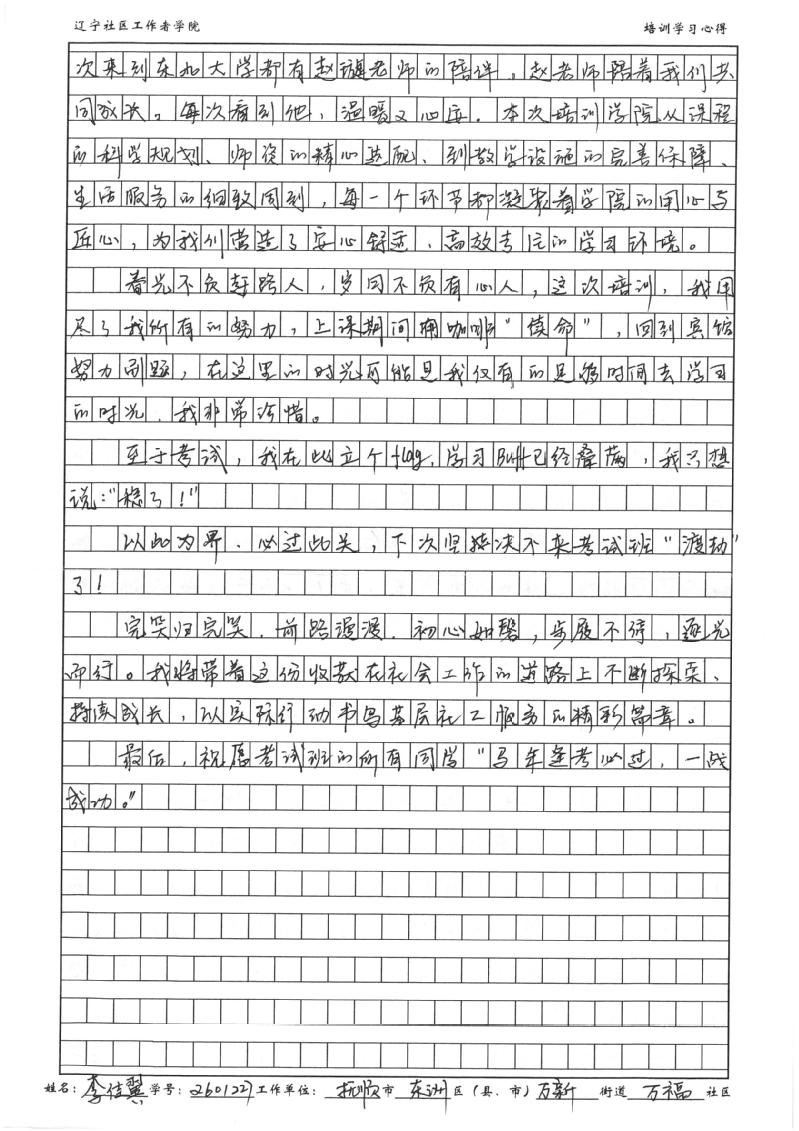 辽宁社区工作者学院 培训学习心得
次来到东北大学都有赵旋老师的陪伴，赵老师陪着我们共
同成长，每次看到他，温暖又心安．本次培训学院从课程
的科学规划、师资的精心选配、到教学设施的完善保障、
生活服务的细致周到，每一个环节都凝聚着学院的用心与
匠心，为我们营造了安心舒适、高效专注的学习环境。
春光不负赶路人，岁月不负有心人，这次培训，我用
尽了我所有的努力，上课期间用咖啡"续命"，回到宾馆
努力刷题，在这里的时光可能是我仅有的足够时间去学习
的时光，我非常珍惜。
至于考试，我在此立个flag，学习Buff已经叠满，我只想
说："稳了！"
以此为界．必过此关，下次坚持决不来考试班"渡劫"
了！
完笑归完笑．前路漫漫．初心如磐，步履不停，逐光
而行。我将带着这份收获在社会工作的道路上不断探索、
持续成长，以实际行动书写基层社工服务的精彩篇章。
最后，祝愿考试班的所有同学"马年逢考必过，一战
成功。"
姓名：李佳翼 学号：2601227 工作单位：抚顺市 东洲区（县、市）万新 街道 万福 社区